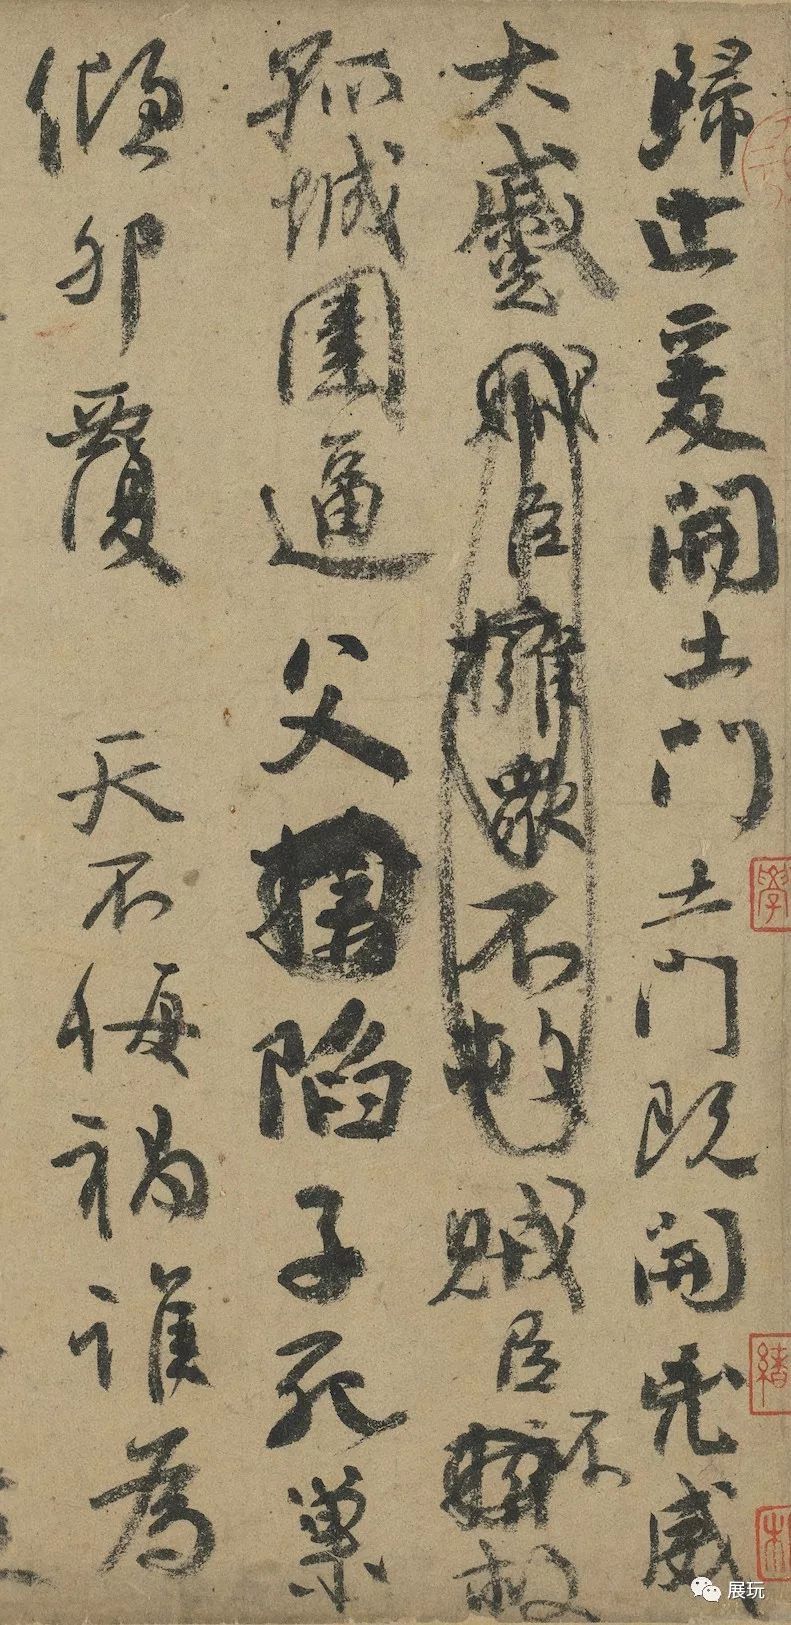 歸止爰開土門土門既開凶威
大蹙賊臣擁衆不救賊臣不救
孤城圍逼父陷子死巢
傾卵覆 天不悔禍誰為
展玩